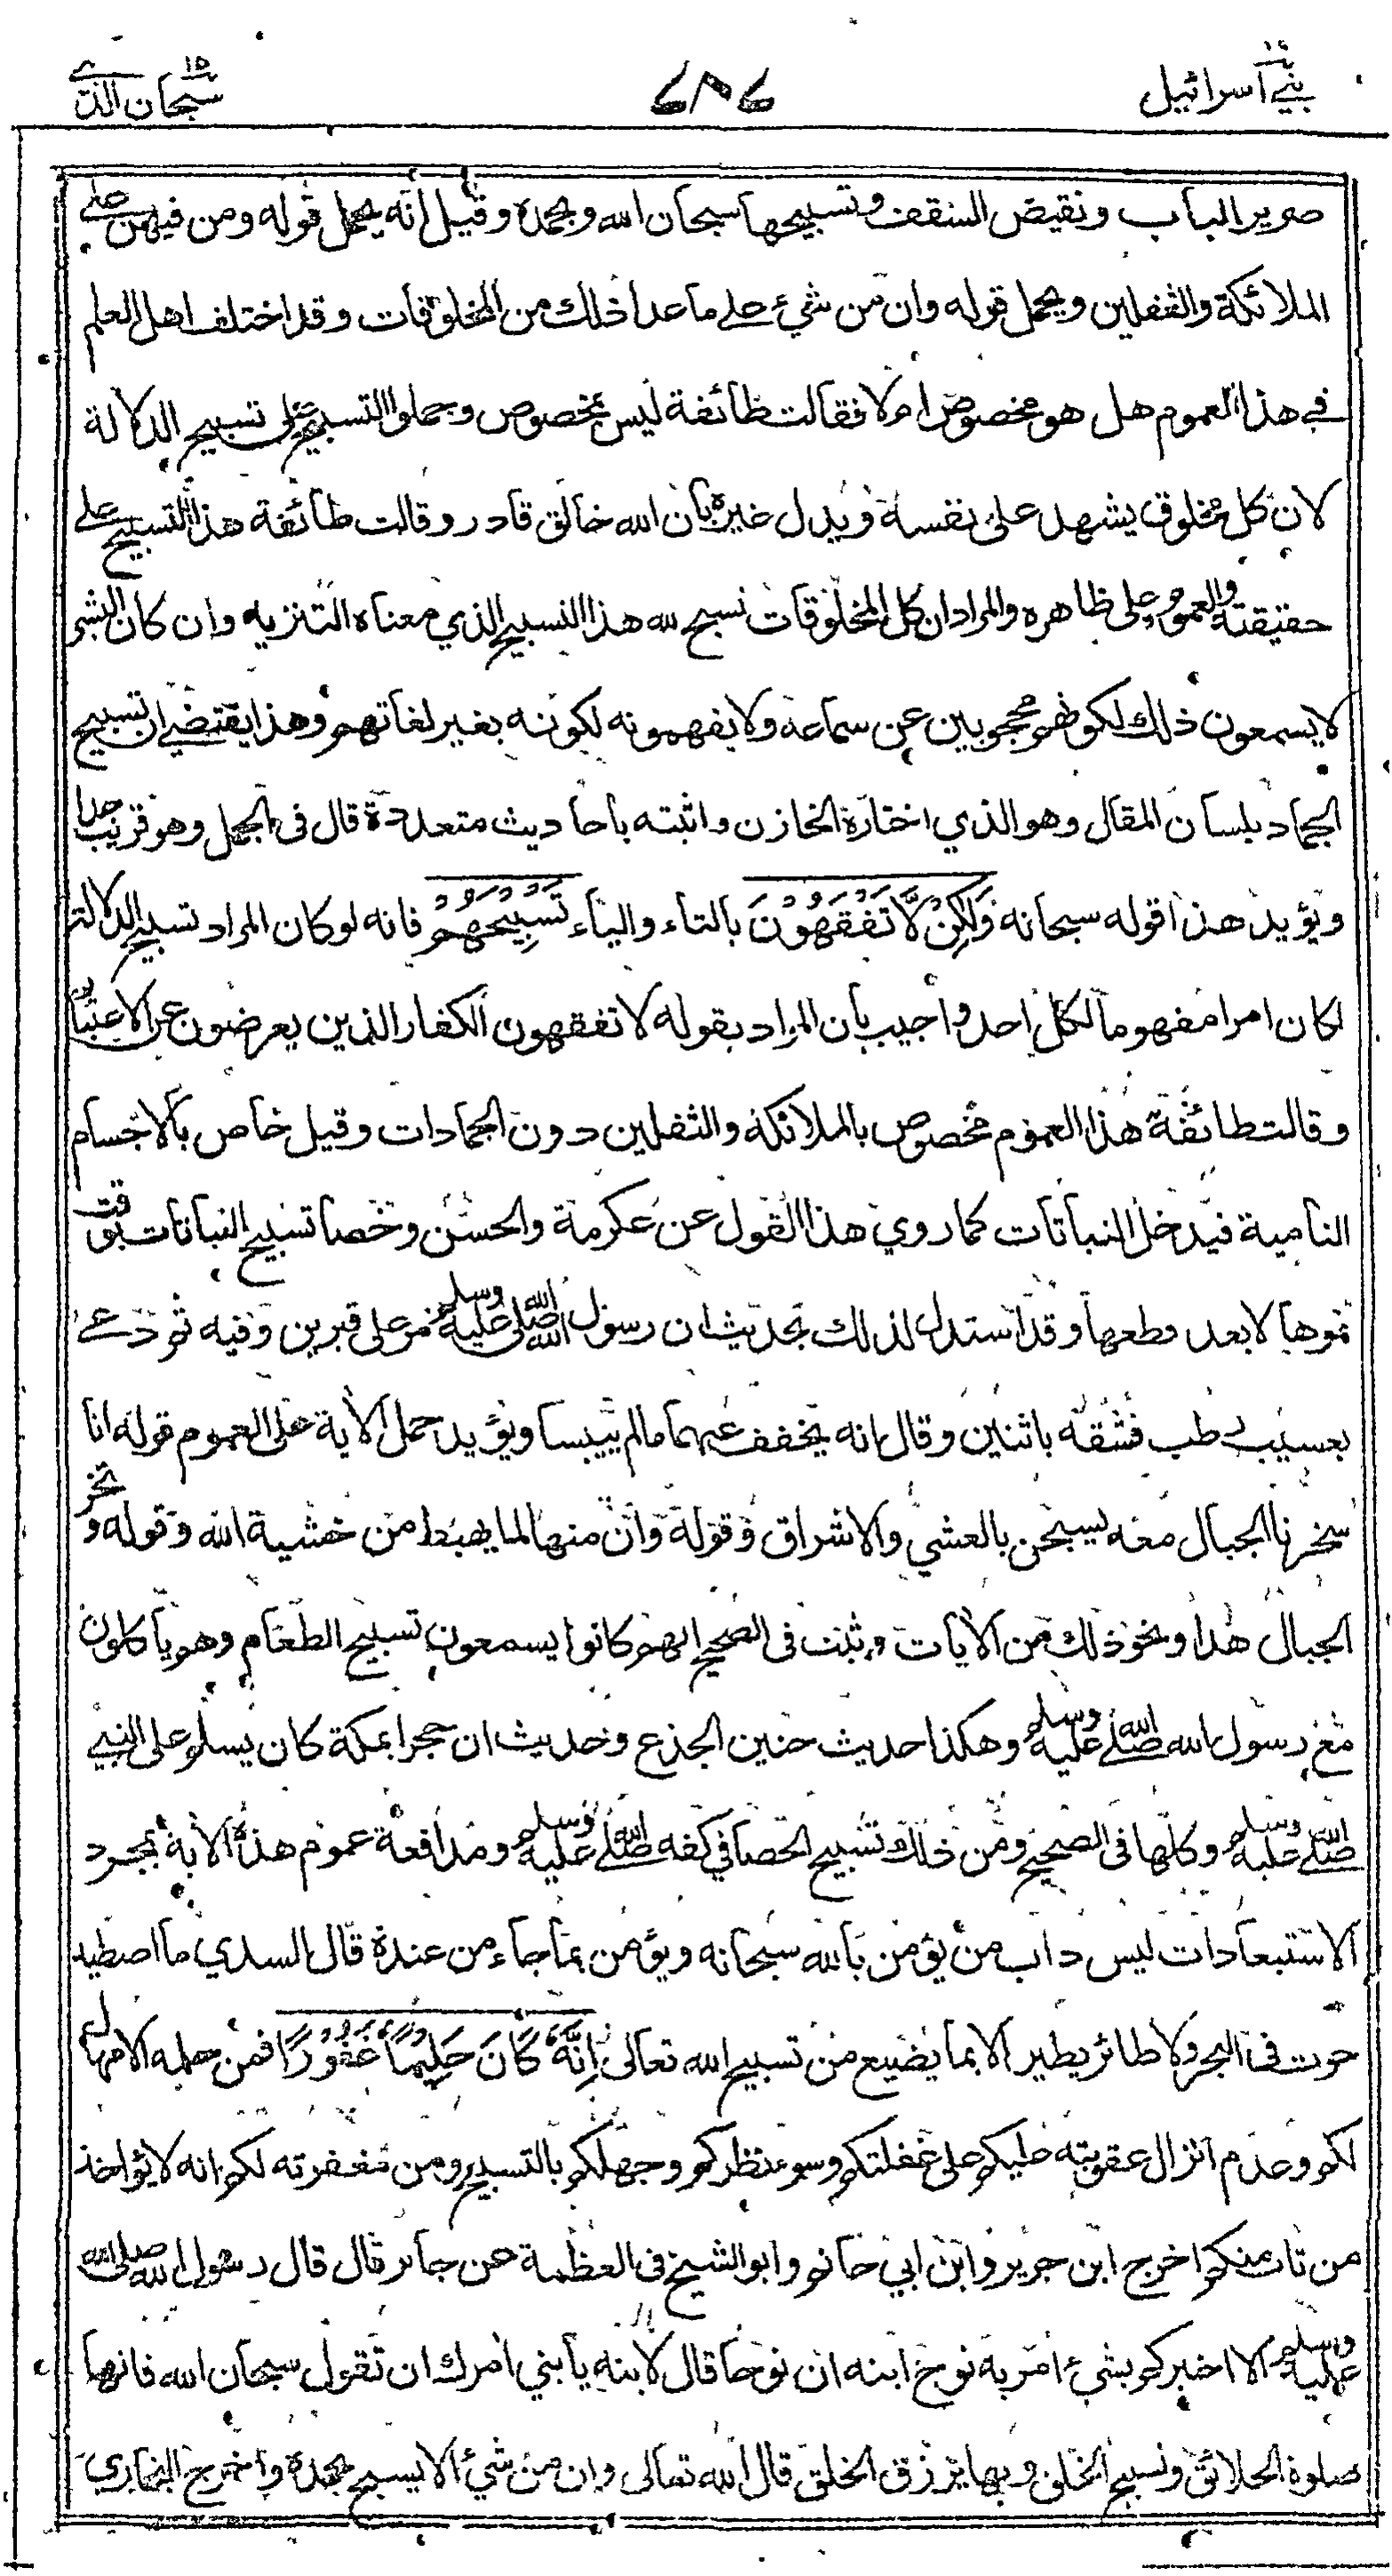 بني اسرائيل ١٧
٦٨٦
سبحان الذي ١٥
صرير الباب ونقيض السقف وتسبيحها سبحان الله وبحمده وقيل انه يحمل قوله ومن فيهن على
الملائكة والثقلين ويحمل قوله وان من شيء على ما عدا ذلك من المخلوقات وقد اختلف اهل العلم
في هذا العموم هل هو مخصوص ام لا فقالت طائفة ليس بمخصوص وحملوا التسبيح على تسبيح الدلالة
لان كل مخلوق يشهد على نفسه ويدل غيره بأن الله خالق قادر وقالت طائفة هذا التسبيح على
حقيقته والعموم على ظاهره والمراد ان كل المخلوقات تسبح لله هذا التسبيح الذي معناه التنزيه وان كان البشر
لا يسمعون ذلك لكونهم محجوبين عن سماعه ولا يفهمونه لكونه بغير لغاتهم وهذا يقتضي ان تسبيح
الجماد بلسان المقال وهو الذي اختاره الخازن واثبته بأحاديث متعددة قال في الجمل وهو قريب جدا
ويؤيد هذا قوله سبحانه وَلَٰكِنْ لَّا تَفْقَهُوْنَ بالتاء والياء تَسْبِيْحَهُمْ فانه لو كان المراد تسبيح الدلالة
لكان امرا مفهوما لكل احد واجيب بأن المراد بقوله لا تفقهون الكفار الذين يعرضون عن الاعتبار
وقالت طائفة هذا العموم مخصوص بالملائكة والثقلين دون الجمادات وقيل خاص بالاجسام
النامية فيدخل النباتات كما روي هذا القول عن عكرمة والحسن وخصا تسبيح النباتات بوقت
نموها لا بعد قطعها وقد استدل لذلك بحديث ان رسول الله صلى الله عليه وسلم مر على قبرين وفيه ثم دعى
بعسيب رطب فشقه باثنين وقال انه يخفف عنهما ما لم ييبسا ويؤيد حمل الآية على العموم قوله انا
سخرنا الجبال معه يسبحن بالعشي والاشراق وقوله وان منها لما يهبط من خشية الله وقوله وتخر
الجبال هدا ونحو ذلك من الآيات وثبت في الصحيح انهم كانوا يسمعون تسبيح الطعام وهم يأكلون
مع رسول الله صلى الله عليه وسلم وهكذا حديث حنين الجذع وحديث ان حجرا بمكة كان يسلم على النبي
صلى الله عليه وسلم وكلها في الصحيح ومن ذلك تسبيح الحصا في كفه صلى الله عليه وسلم ومدافعة عموم هذه الآية بمجرد
الاستبعادات ليس داب من يؤمن بالله سبحانه ويؤمن بما جاء من عنده قال السدي ما اصطيد
حوت في البحر ولا طائر يطير الا بما يضيع من تسبيح الله تعالى اِنَّهٗ كَانَ حَلِيْمًا غَفُوْرًا فمن حلمه الامهال
لكم وعدم انزال عقوبته عليكم على غفلتكم وسوء نظركم وجهلكم بالتسبيح ومن مغفرته لكم انه لا يؤاخذ
من تاب منكم اخرج ابن جرير وابن ابي حاتم وابو الشيخ في العظمة عن جابر قال قال رسول الله صلى الله
عليه وسلم الا اخبركم بشيء امر به نوح ابنه ان نوحا قال لابنه يا بني امرك ان تقول سبحان الله فانها
صلوة الخلائق وتسبيح الخلق وبها يرزق الخلق قال الله تعالى وان من شيء الا يسبح بحمده واخرج البخاري